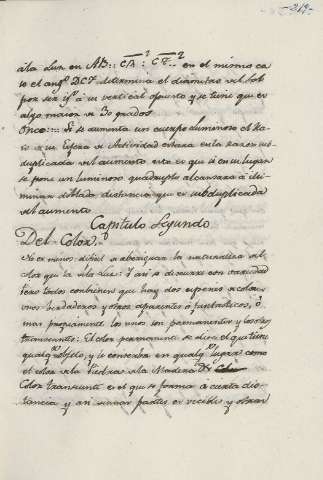 213
à la Luz en AB:: CB² : CF² en el mismo ca
so el ang.º DCF determina el diametro del Sol
por ser yg.l à su vertical opuesto y se tiene que es
algo maior de 30 grados
Si se aumenta un cuerpo luminoso el Ra
io de su esfera de Actividad estara en la razon sub
duplicada del aumento esto es que si en un lugar
se pone un luminoso quadruplo alcanzarà à ilu
minar doblada distancia que es subduplicada
del aumento
Capitulo Segundo
Del Color
No es menos dificil de aberiguar la naturaleza del
color que la de la Luz: Y asi se discurre con variedad
pero todos combienen que hay dos especies de colores
unos berdaderos y otros aparentes ò fantasticos, ò
mas propiamente los unos son permanentes y los otros
transeuntes: El color permanente se dice el que tiene
qualq.r objeto, y le conserba en qualq.r lugar como
el color de la Piedra de la Madera &c
Color transeunte es el que se forma à cierta dis
tancia y asi sin